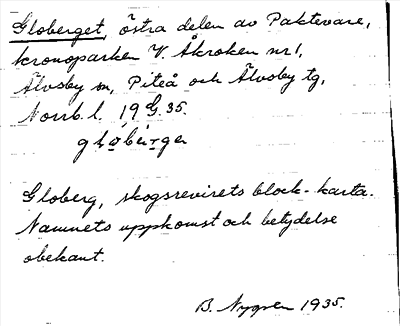 Globerget, östra delen av Paktevare,
kronoparken V. Åkroken nr 1,
Älvsby sn, Piteå och Älvsby tg,
Norrb. l. 19 G. 35.
Globerg, skogsrevirets block-karta.
Namnets uppkomst och betydelse
obekant.
B. Nygren 1935.